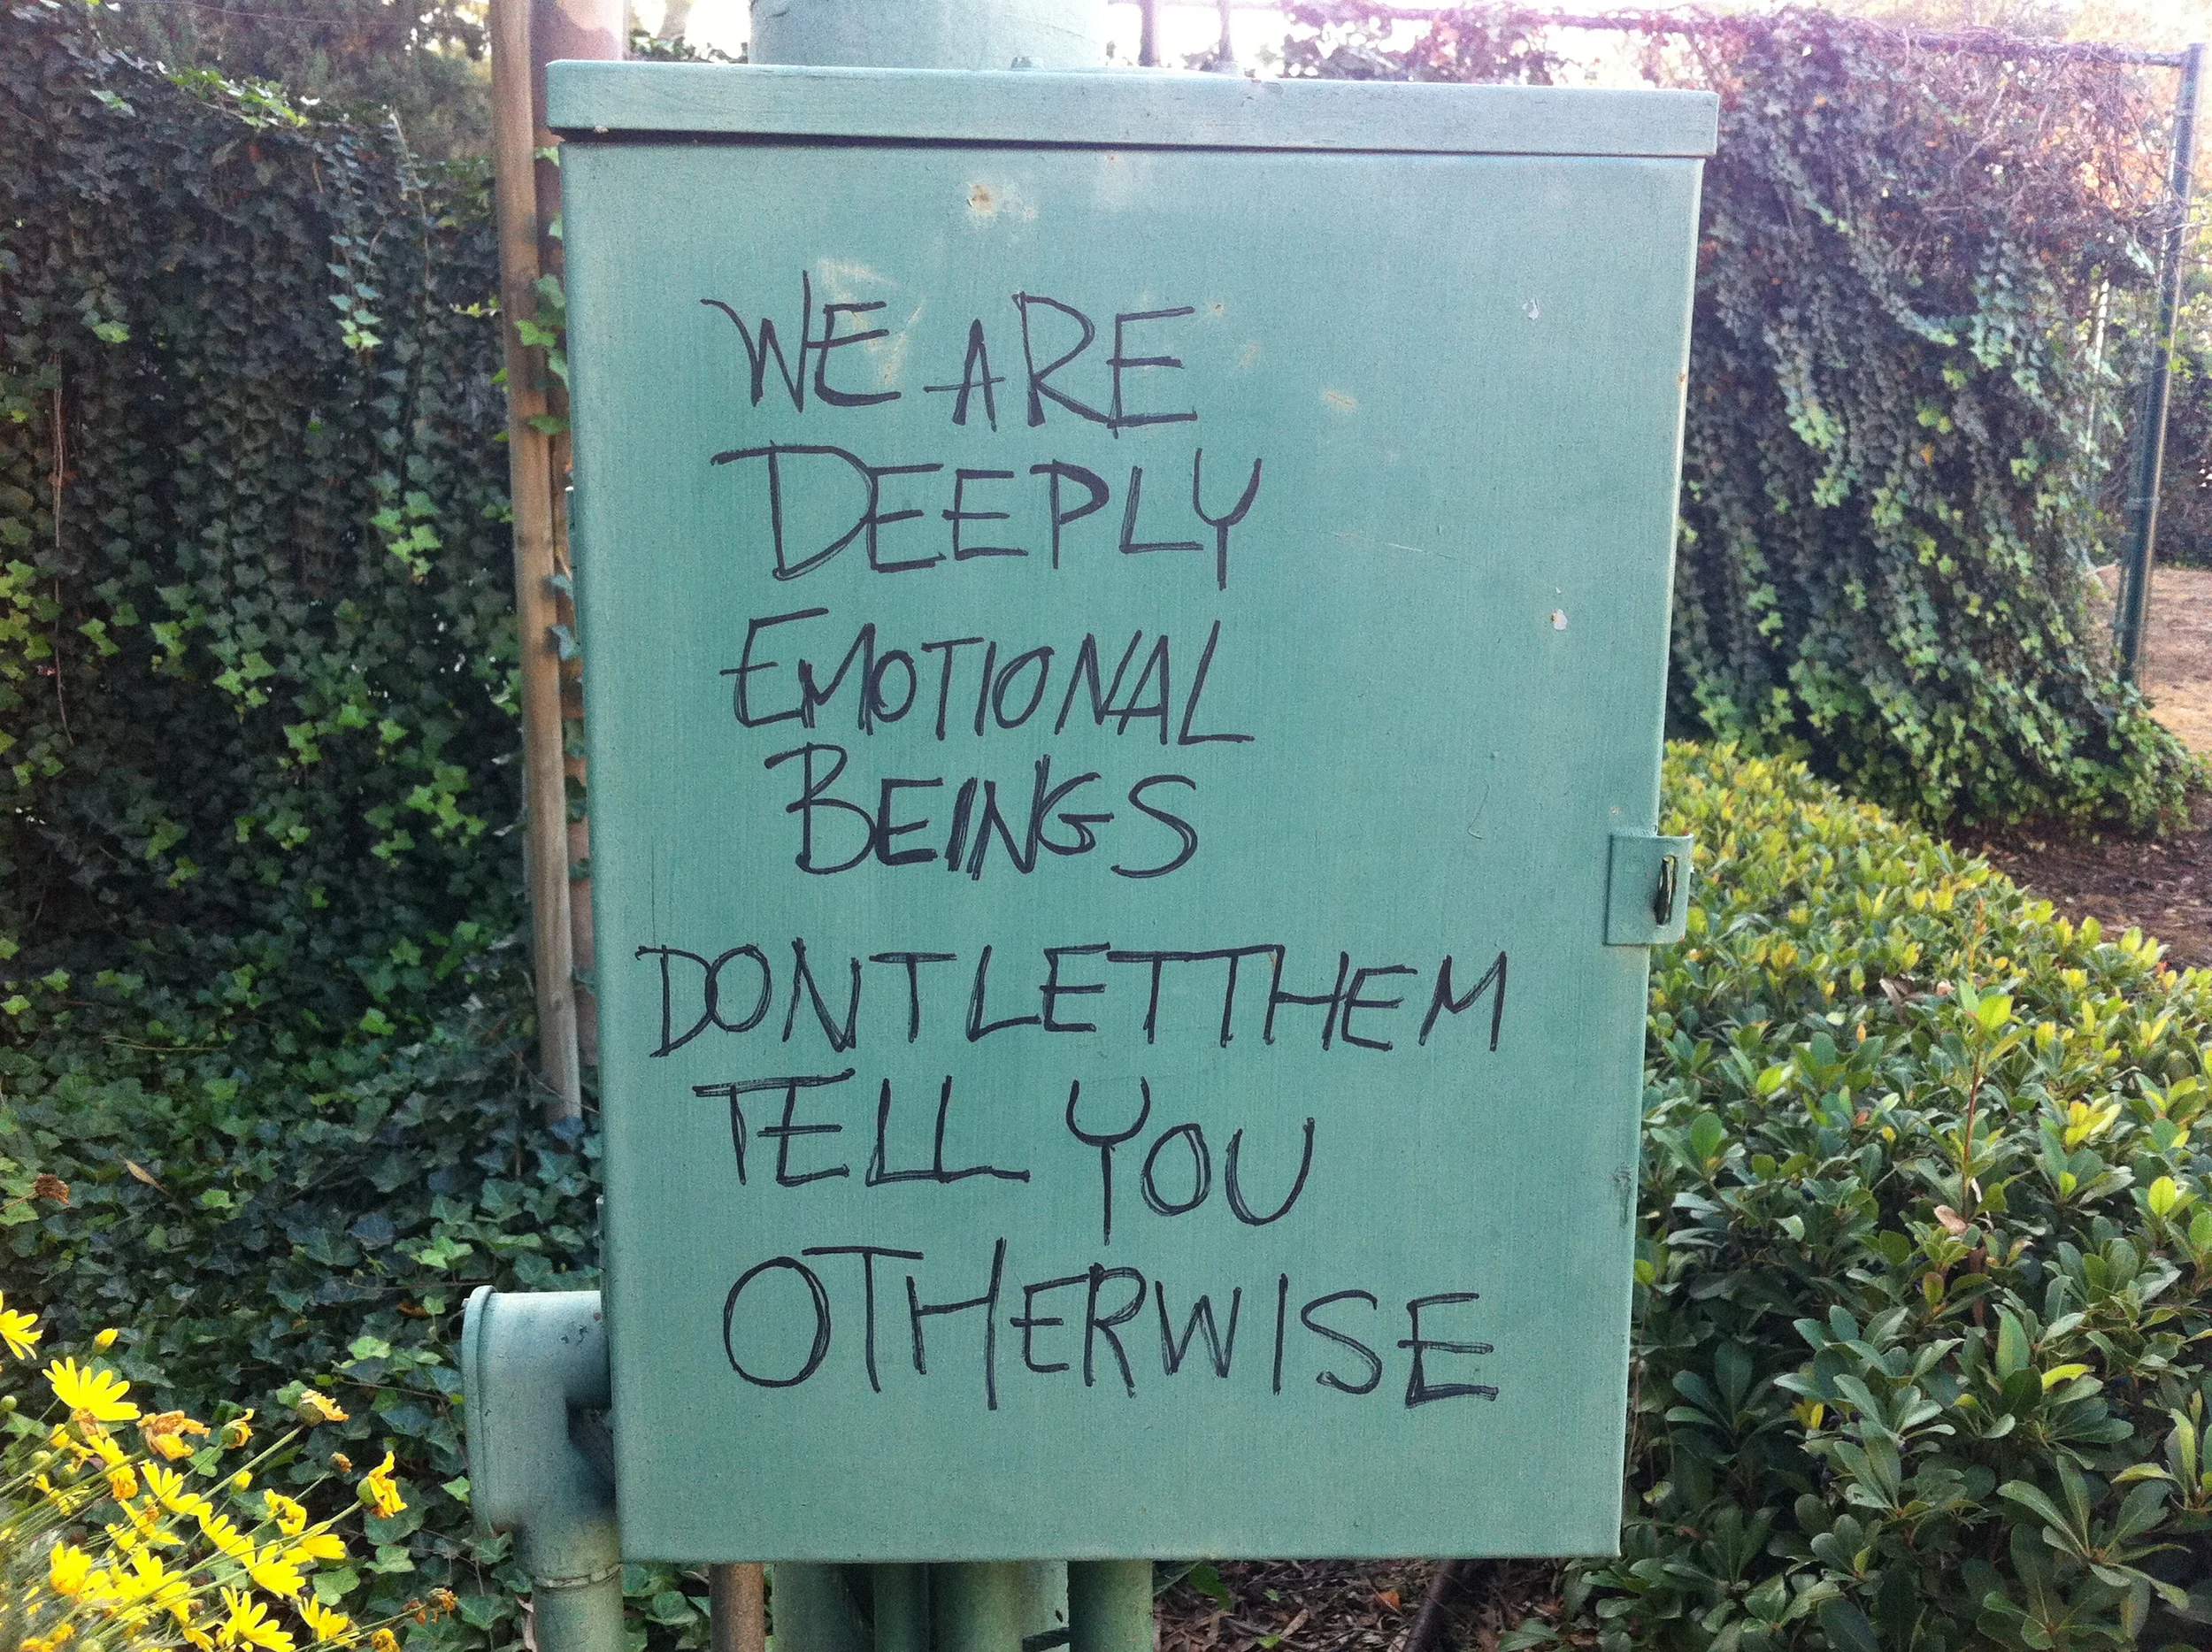 WE ARE
DEEPLY
EMOTIONAL
BEINGS
DONT LET THEM
TELL YOU
OTHERWISE